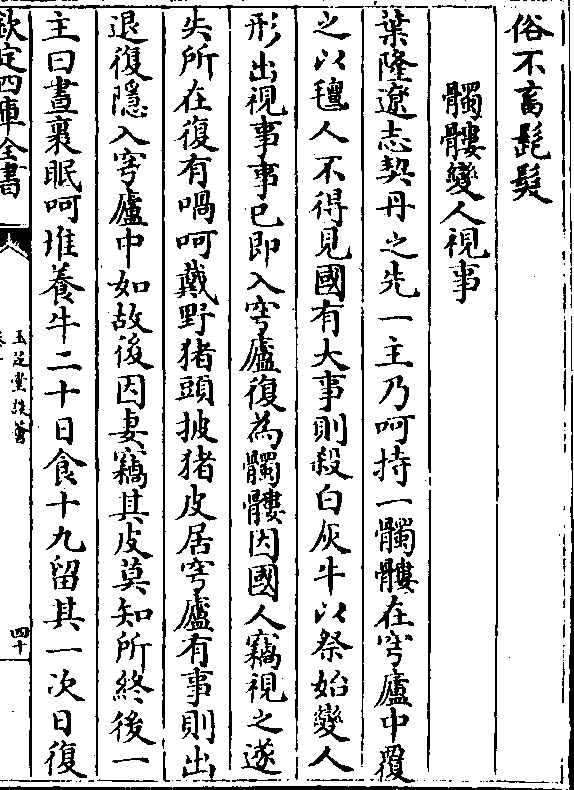 俗不畜髭髮
髑髏變人視事
葉隆遼志契丹之先一主乃呵持一髑髏在穹廬中覆
之以氊人不得見國有大事則殺白灰牛以祭始變人
形出視事事已即入穹廬復為髑髏因國人竊視之遂
失所在復有喎呵戴野猪頭披猪皮居穹廬有事則出
退復隱入穹廬中如故後因妻竊其皮莫知所終後一
主曰晝裏眠呵堆養牛二十日食十九留其一次日復
欽定四庫全書
玉芝堂談薈
四十